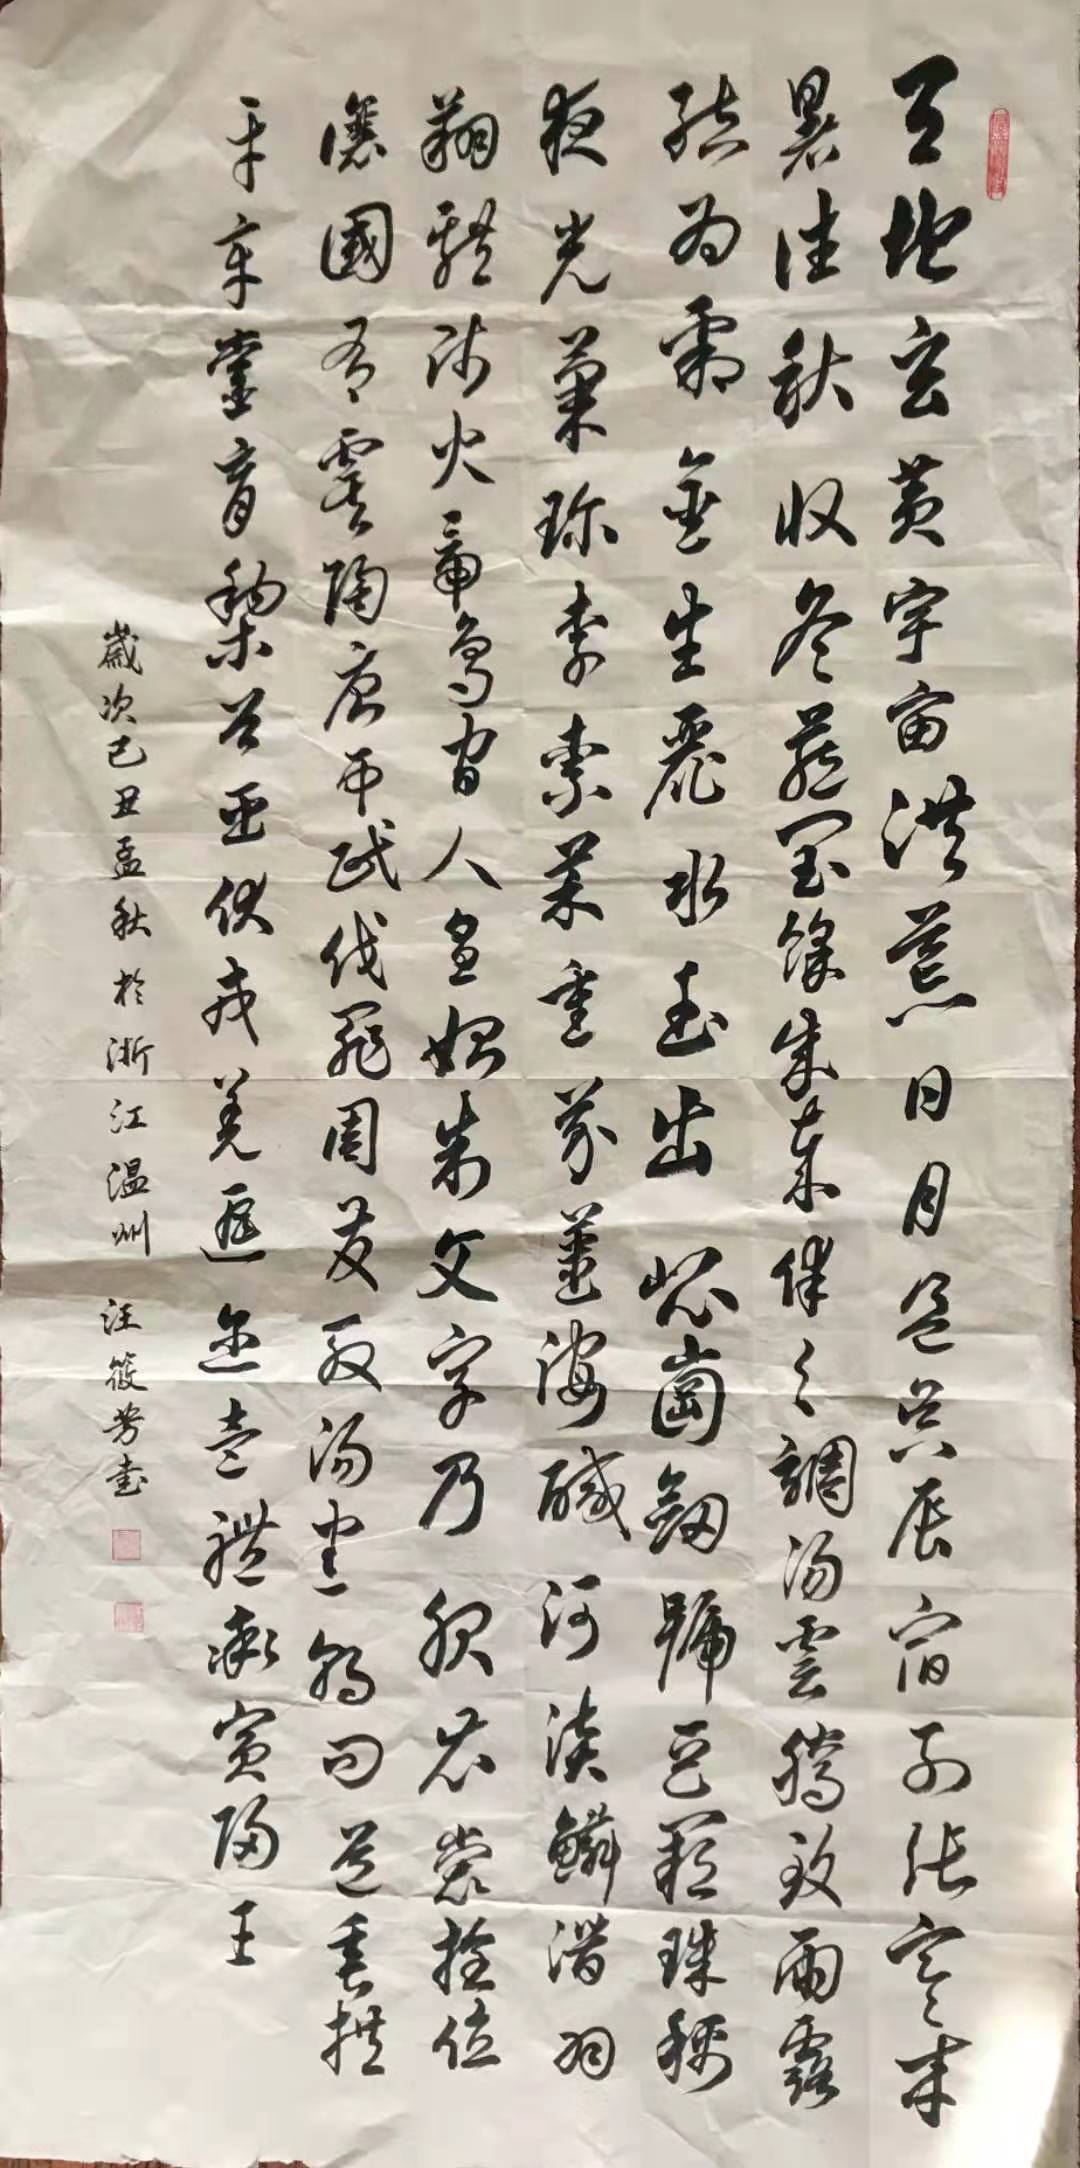 天地玄黃宇宙洪荒日月盈昃辰宿列張寒來
暑往秋收冬藏閏餘成歲律呂調陽雲騰致雨露
結為霜金生麗水玉出崑崗劍號巨闕珠稱
夜光菓珍李柰菜重芥薑海鹹河淡鱗潛羽
翔龍師火帝鳥官人皇始制文字乃服衣裳推位
讓國有虞陶唐弔民伐罪周發殷湯坐朝問道垂拱
平章愛育黎首臣伏戎羌遐邇壹體率賓歸王
歲次己丑孟秋於浙江温州 汪筱芳書